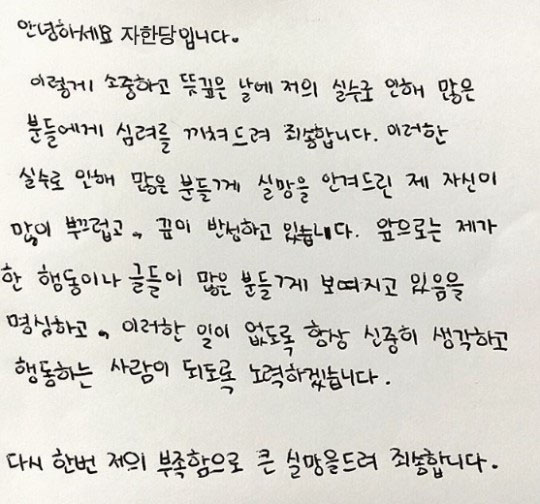 안녕하세요 자한당입니다.
이렇게 소중하고 뜻깊은 날에 저의 실수로 인해 많은
분들에게 심려를 끼쳐드려 죄송합니다. 이러한
실수로 인해 많은 분들께 실망을 안겨드린 제 자신이
많이 부끄럽고, 깊이 반성하고 있습니다. 앞으로는 제가
한 행동이나 글들이 많은 분들께 보여지고 있음을
명심하고, 이러한 일이 없도록 항상 신중히 생각하고
행동하는 사람이 되도록 노력하겠습니다.
다시 한번 저의 부족함으로 큰 실망을드려 죄송합니다.